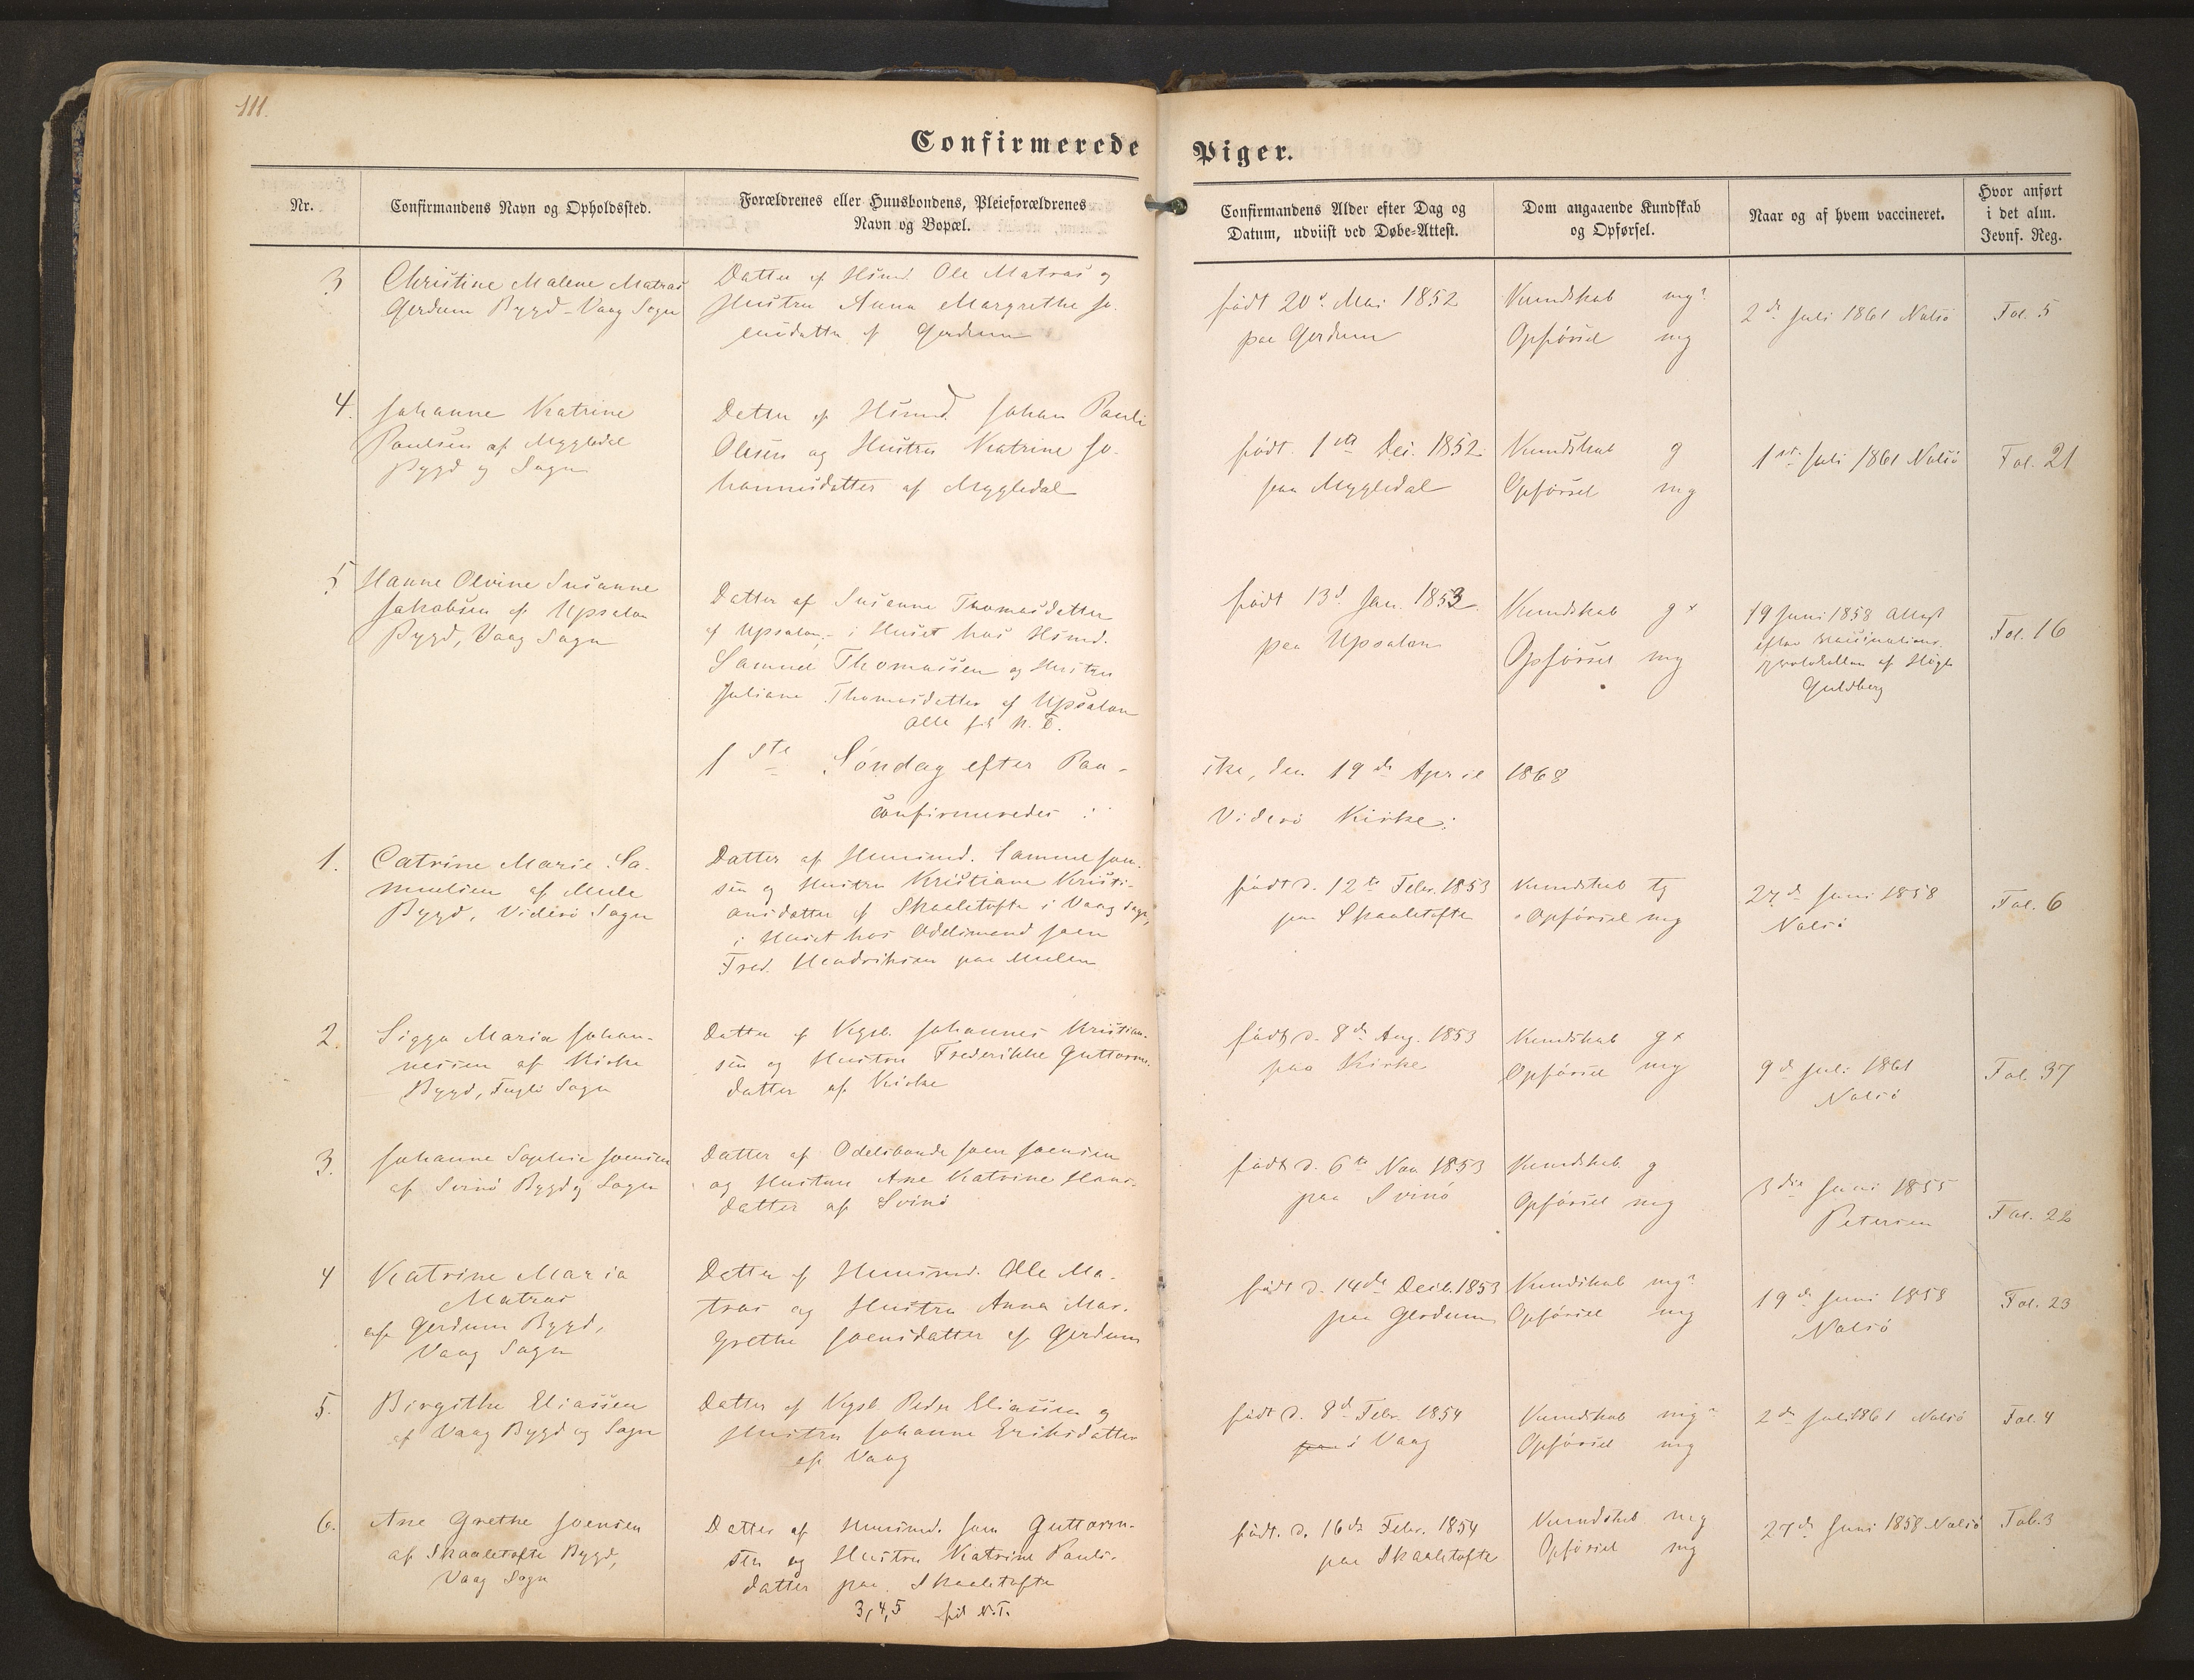 111.
Confirmerede Piger.
Nr.
Confirmandens Navn og Opholdssted.
Forældrenes eller Huusbondens, Pleieforældrenes
Navn og Bopæl.
Confirmandens Alder efter Dag og
Datum, udviist ved Døbe-Attest.
Dom angaaende Kundskab
og Opførsel.
Naar og af hvem vaccineret.
Hvor anført
i det alm.
Jevnf. Reg.
3
Christine Malene Matras
Gerdum Bygd - Vaag Sogn
Datter af Husmd. Ole Matras og
Hustru Anna Margrethe Jo-
ensdatter af Gerdum
født 20d. Mai 1852
paa Gerdum
Kundskab mg?
Opførsel mg
2de Juli 1861 Nolsö
Fol. 5
4.
Johanne Katrine
Poulsen af Myggledal
Bygd og Sogn
Datter af Husmd. Johan Pauli
Olesen og Hustru Katrine Jo-
hannesdatter af Myggledal
født 1ste Dec. 1852
paa Myggledal
Kundskab g
Opførsel mg
1ste Juli 1861 Nolsö
Fol. 21
5
Hanne Olvine Susanne
Jakobsen af Upsalon
Bygd, Vaag Sogn
Datter af Susanne Thomasdatter
af Upsalon, - i Huset hos Husmd.
Samuel Thomassen og Hustru
Juliane Thomasdatter af Upsalon
Alle fik N.T.
født 13d. Jan. 1853
paa Upsalon
Kundskab g x
Opførsel mg
19 Juni 1858 Attest
efter Vaccinations-
protokollen af Högh
Guldberg
Fol. 16
1ste Söndag efter Paa-
ske, den 19de April 1868
confirmeredes i
Viderö Kirke:
1.
Catrine Marie Sa-
muelsen af Mule
Bygd, Viderö Sogn
Datter af Huusmd. Samuel Joen-
sen og Hustru Kristiane Kristi-
ansdatter af Skaaletofte i Vaag Sogn,
i Huset hos Odelsmand Joen
Fred. Hendriksen paa Mulen
født d. 12te Febr. 1853
paa Skaaletofte
Kundskab tg
Opførsel mg
27de Juni 1858
Nolsö
Fol. 6
2.
Sigga Maria Johan-
nessen af Kirke
Bygd, Fuglö Sogn
Datter af Kgsb. Johannes Kristian-
sen og Hustru Frederikke Guttorms-
datter af Kirke
født d. 8de Aug. 1853
paa Kirke
Kundskab g x
Opførsel mg
9de Juli 1861
Nolsö
Fol. 37
3.
Johanne Sophie Joensen
af Svinö Bygd og Sogn
Datter af Odelsbonde Joen Joensen
og Hustru Ane Katrine Hans-
datter af Svinö
født d. 6te Nov 1853
paa Svinö
Kundskab g
Opførsel mg
3die Juni 1855
Petersen
Fol. 22
4
Katrine Maria
Matras
af Gerdum Bygd,
Vaag Sogn
Datter af Huusmd. Olle Ma-
tras og Hustru Anna Mar-
grethe Joensdatter af Gerdum
født d. 14de Decb. 1853
paa Gerdum
Kundskab mg?
Opførsel mg
19de Juni 1858
Nolsö
Fol. 23
5.
Birgithe Eliassen
af Vaag Bygd og Sogn
Datter af Kgsb. Peder Eliassen og
Hustru Johanne Eriksdatter
af Vaag
født d. 8d Febr. 1854
paa i Vaag
Kundskab mg?
Opførsel mg
2de Juli 1861 Nolsö
Fol. 4
6.
Ane Grethe Joensen
af Skaaletofte Bygd,
Vaag Sogn
Datter af Huusmd. Joen Guttorm-
sen og Hustru Katrine Pouls-
datter paa Skaaletofte
3, 4, 5 fik N.T.
født. d. 16de Febr. 1854
paa Skaaletofte
Kundskab mg
Opførsel mg
27de Juni 1858 Nolsö
Fol. 3